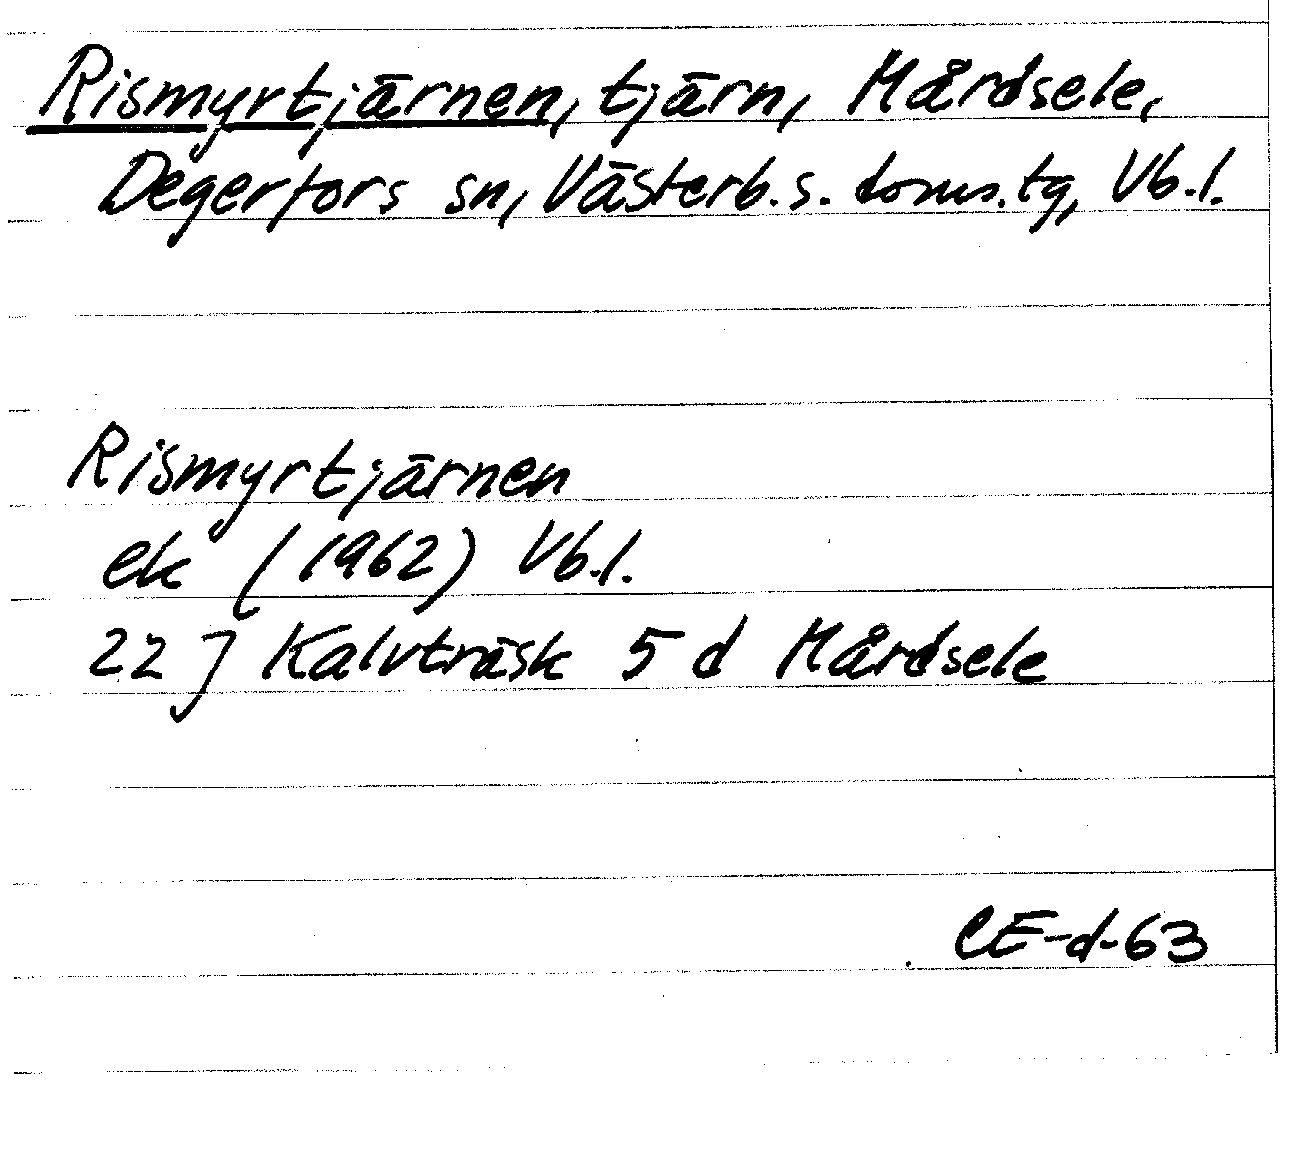 Rismyrtjärnen, tjärn, Mårdsele,
Degerfors sn, Västerb. s. doms.tg, Vb.l.
Rismyrtjärnen
ek (1962) Vb.l.
22 J Kalvträsk 5 d Mårdsele
CE-d-63